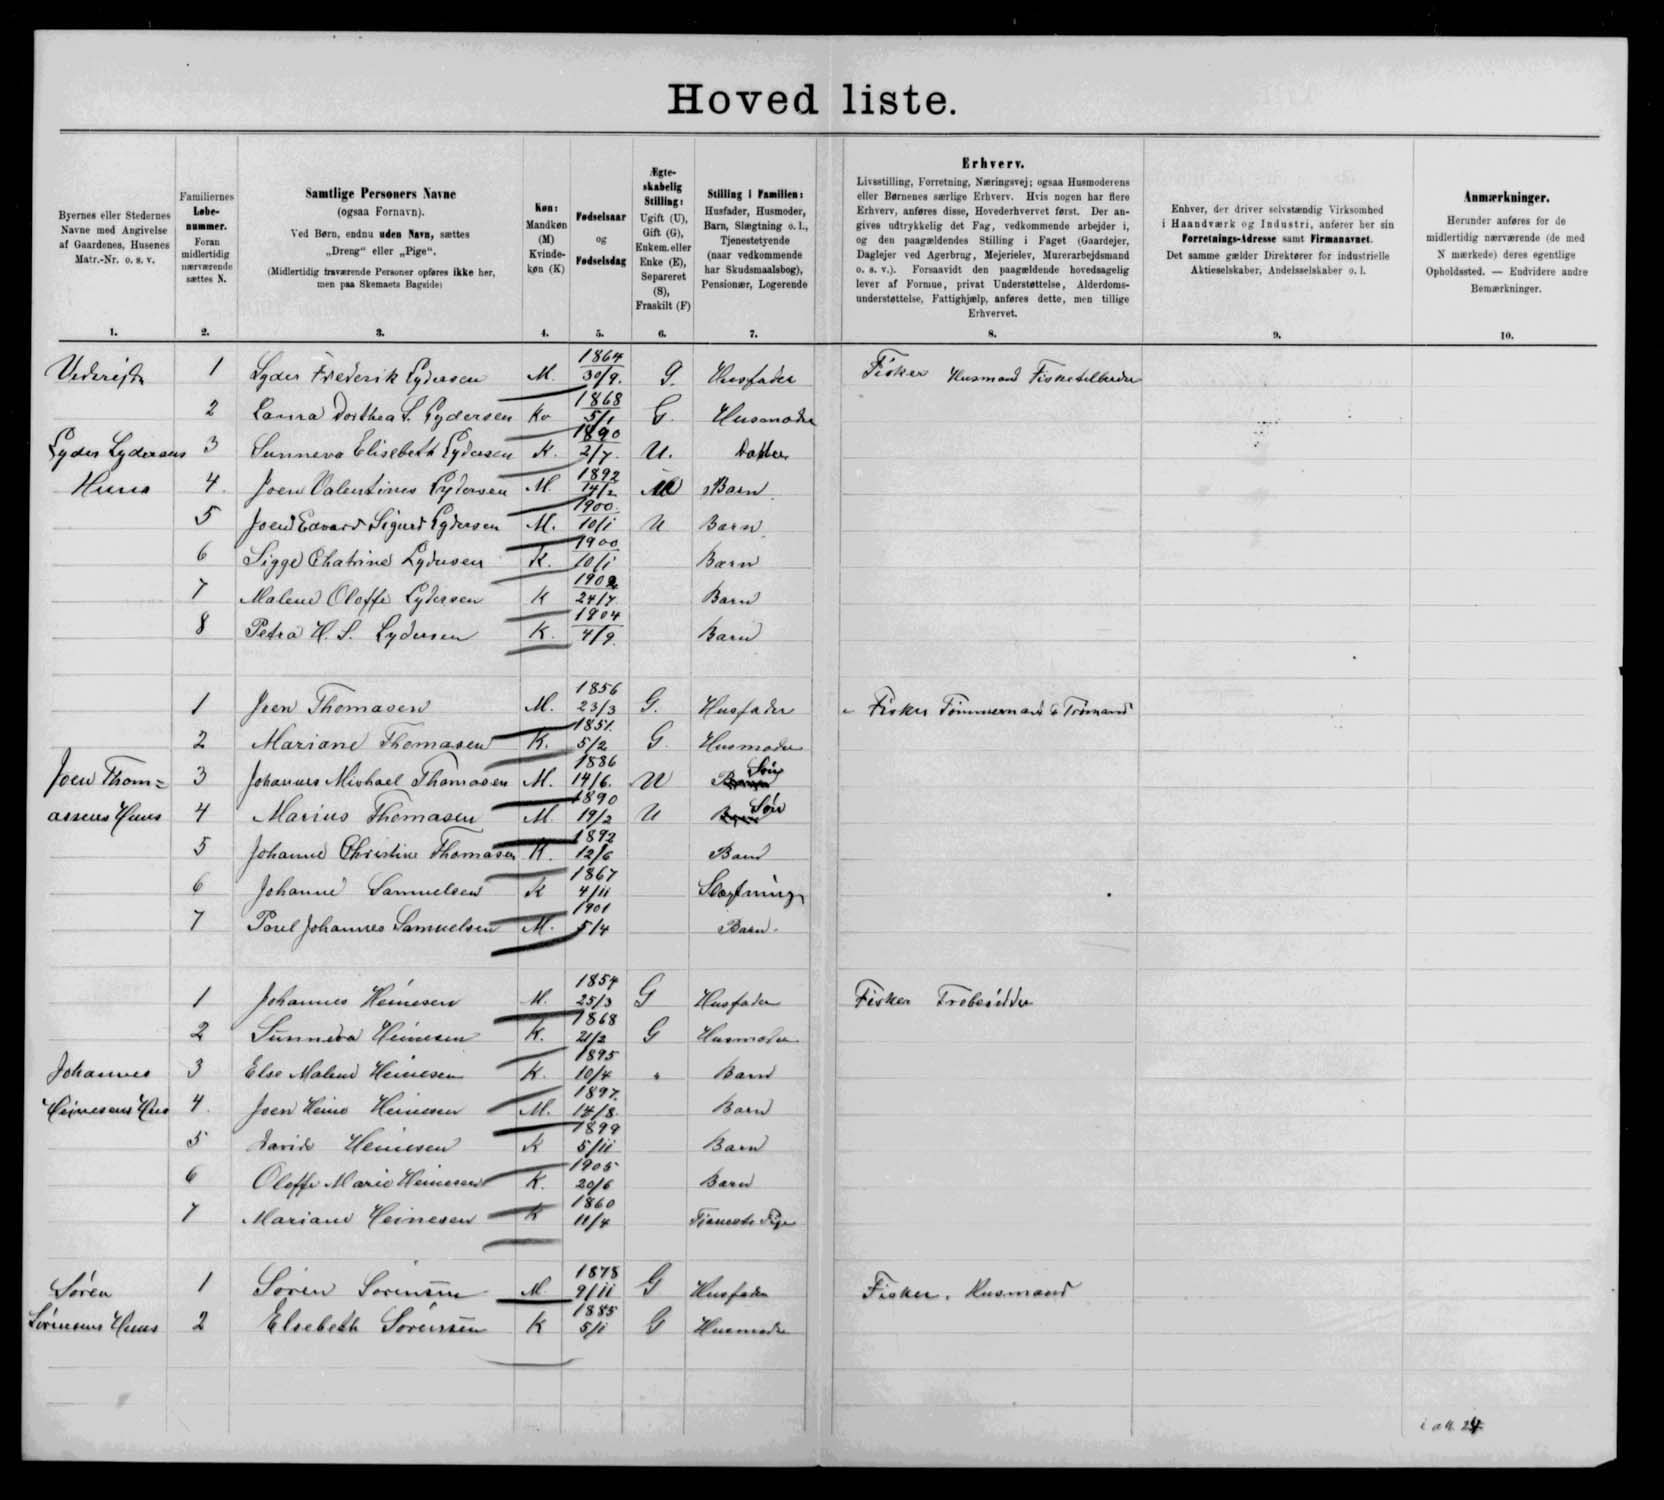 Hovedliste.
Byernes eller Stedernes Navne med Angivelse af Gaardenes, Husenes Matr.-Nr. o. s. v.
Familiernes Løbe-nummer. Foran midlertidig nærværende sættes N.
Samtlige Personers Navne (ogsaa Fornavn). Ved Børn, endnu uden Navn, sættes „Dreng" eller „Pige". (Midlertidig fraværende Personer opføres ikke her, men paa Skemaets Bagside)
Køn: Mandkøn (M) Kvinde-køn (K)
Fødselsaar og Fødselsdag
Ægte-skabelig Stilling: Ugift (U), Gift (G), Enkem. eller Enke (E), Separeret (S), Fraskilt (F)
Stilling i Familien: Husfader, Husmoder, Barn, Slægtning o. l., Tjenestetyende (naar vedkommende har Skudsmaalsbog), Pensionær, Logerende
Erhverv.
Livsstilling, Forretning, Næringsvej; ogsaa Husmoderens eller Børnenes særlige Erhverv. Hvis nogen har flere Erhverv, anføres disse, Hovederhvervet først. Der angives udtrykkelig det Fag, vedkommende arbejder i, og den paagældendes Stilling i Faget (Gaardejer, Daglejer ved Agerbrug, Mejerielev, Murerarbejdsmand o. s. v.). Forsaavidt den paagældende hovedsagelig lever af Formue, privat Understøttelse, Alderdomsunderstøttelse, Fattighjælp, anføres dette, men tillige Erhvervet.
Enhver, der driver selvstændig Virksomhed i Haandværk og Industri, anfører her sin Forretnings-Adresse samt Firmanavnet. Det samme gælder Direktører for industrielle Aktieselskaber, Andelsselskaber o. l.
Anmærkninger.
Herunder anføres for de midlertidig nærværende (de med N mærkede) deres egentlige Opholdssted. — Endvidere andre Bemærkninger.
1. 2. 3. 4. 5. 6. 7. 8. 9. 10.
1 Lyder Frederik Lydersen M. 1864 30/9. G. Husfader Fisker Husmand
2 Laura Dorthea S. Lydersen Ko 1868 5/1 G. Husmoder
Lyder Lydersens 3 Sunneva Elisebeth Lydersen K. 1890 2/7. U. Datter
Huus 4. Joen Valentinus Lydersen M. 1892 14/2 Barn
5 Joen Edvard Sigurd Lydersen M. 1900 10/1 U Barn
6 Sigge Chatrine Lydersen K. 1900 10/1 Barn
7 Malene Oloffe Lydersen K 1902 24/7. Barn
8 Petra H. S. Lydersen K. 1904 4/9. Barn
1 Joen Thomasen M. 1856 23/3 G. Husfader Fisker Tømmermand &
2 Mariane Thomasen K. 1851. 5/2 G. Husmoder
Joen Thom= 3 Johannes Michael Thomasen M. 1886 14/6. U Søn
assens Huus 4 Marius Thomasen M. 1890 19/2 U Søn
5 Johanne Christine Thomasen K. 1892 12/6 Barn
6 Johanne Samuelsen K 1867 4/11 Slægtning
7 Poul Johannes Samuelsen M. 1901 5/4 Barn.
1 Johannes Heinesen M. 1854 25/3 G Husfader Fisker
2 Sunneva Heinesen K. 1868 21/2 G Husmoder
Johannes 3 Else Malene Heinesen K. 1895 10/4 " Barn
Heinesens Hus 4. Joen Heine Heinesen M. 1897. 14/8. Barn
5 Heinesen K 1899 5/11 Barn
6 Oloffe Marie Heinesen K. 1905 20/6 Barn
7 Mariane Heinesen K 1860 11/4 Tjeneste Pige
Søren 1 Søren Sørensen M. 1878 9/11 G Husfader Fisker. Husmand
Sørensens Huus 2 Elsebeth Sørensen K 1885 5/1 G Husmoder
i alt 24